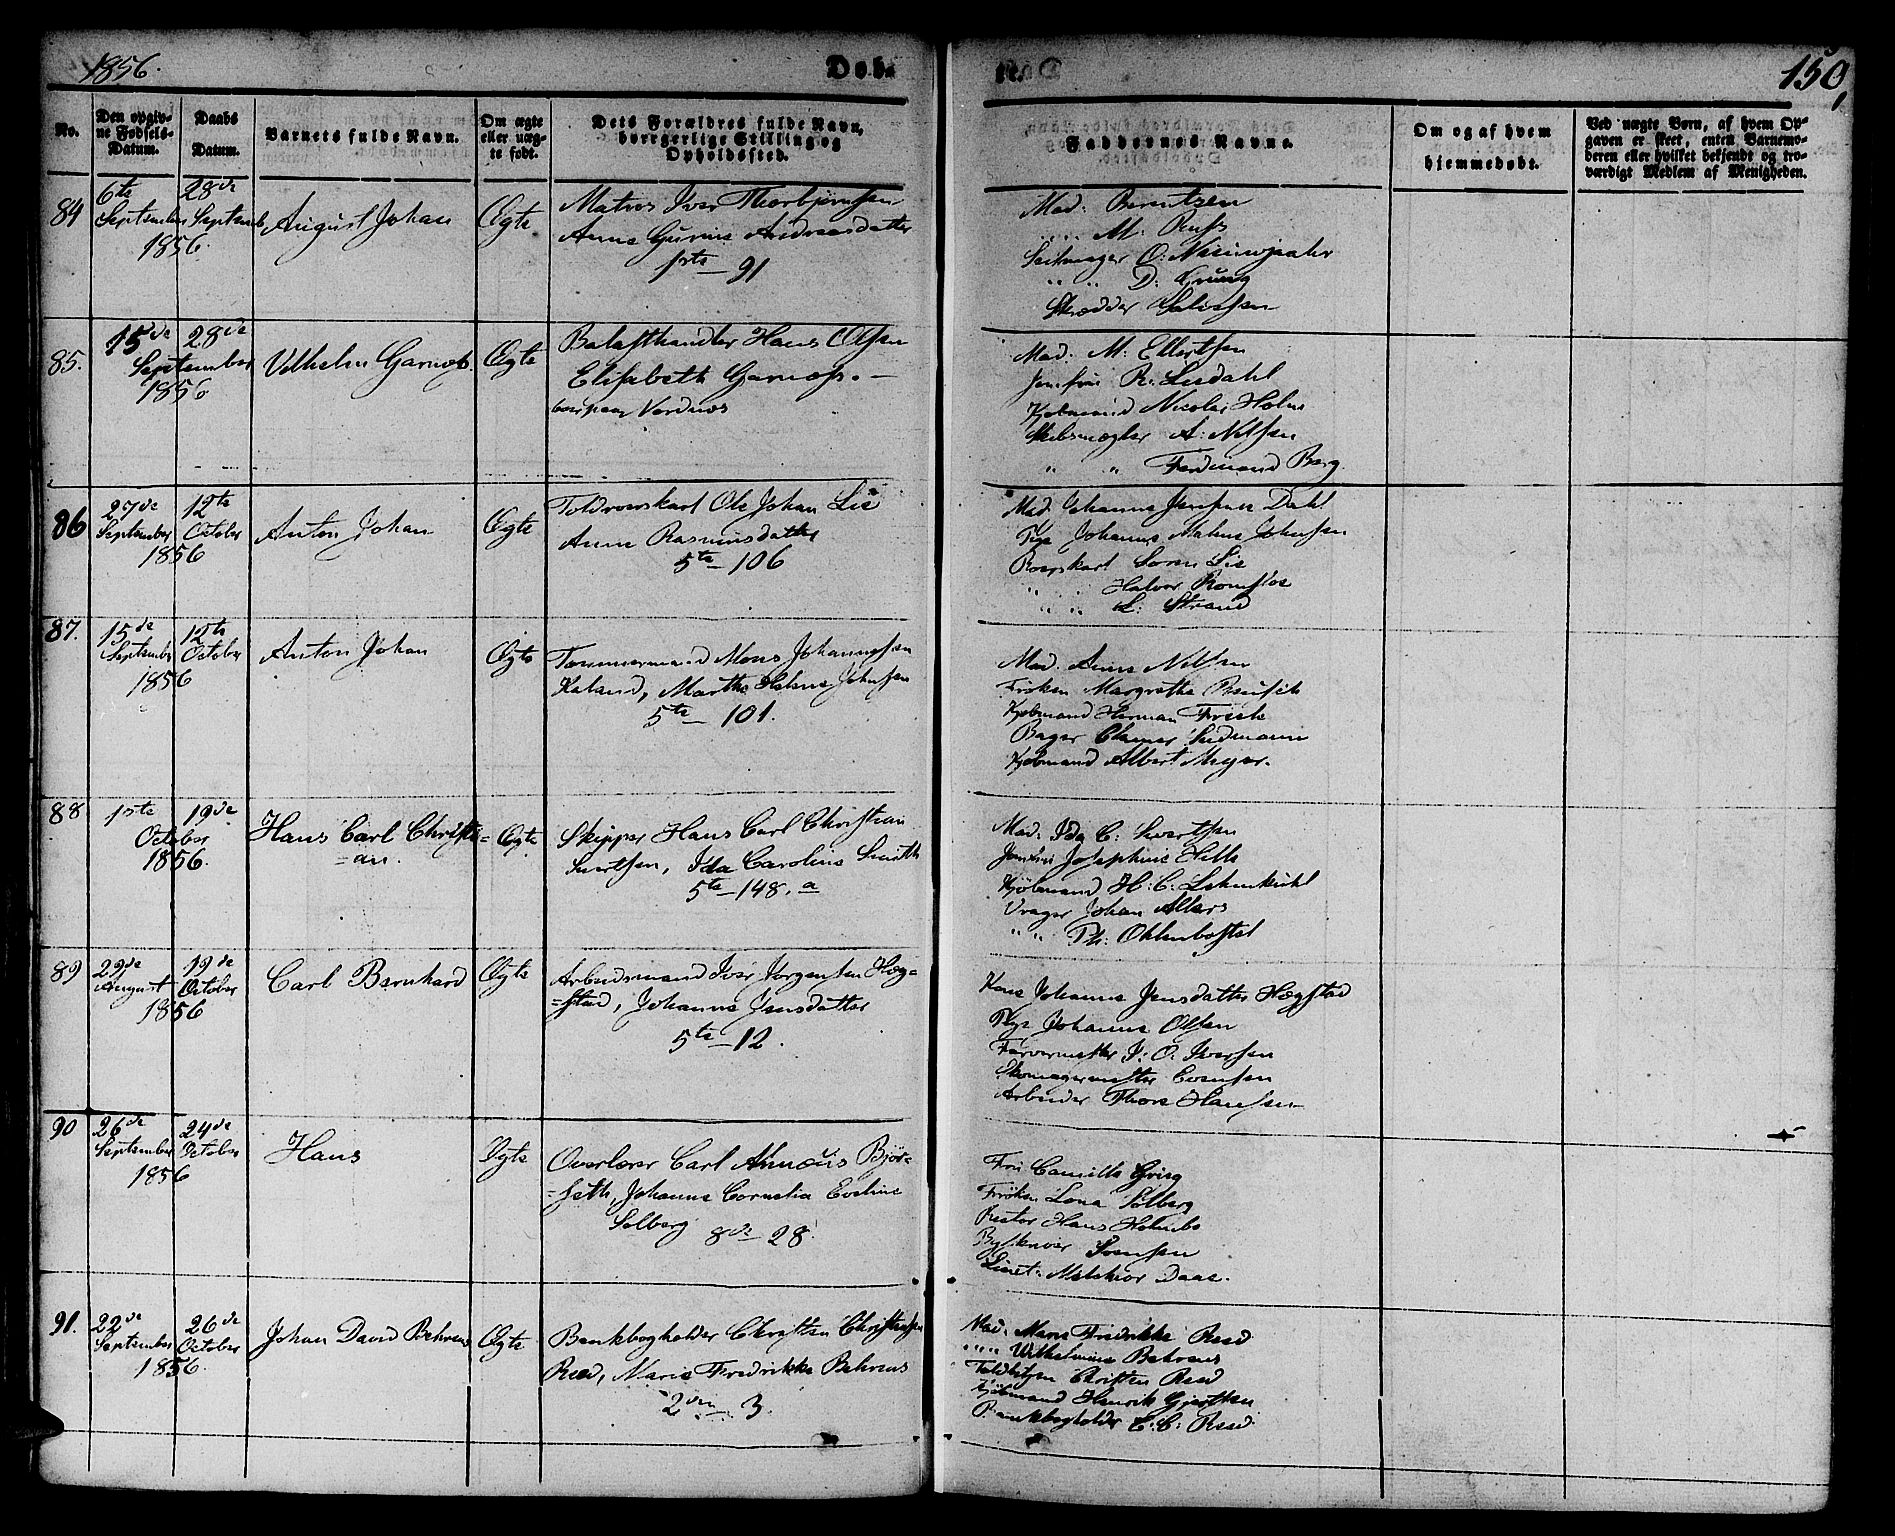 1856.
Døb-
te.
150
No.
Den opgiv-
ne Fødsels-
Datum.
Daabs
Datum.
Barnets fulde Navn.
Om ægte
eller uæg-
te født.
Dets Forældres fulde Navn,
borgerlige Stilling og
Opholdssted.
Faddernes Navne.
Om og af hvem
hjemmedøbt.
Ved uægte Børn, af hvem Op-
gaven er skeet, enten Barnemo-
deren eller hvilket bekjendt og tro-
værdigt Medlem af Menigheden.
84
6te
September
1856.
28de
Septemb.
August Johan
Ægte
Matros Iver Thorbjørnsen
Anne Gurine Andreasdatter
1ste 91
Mad: Berntzen
" " M: Russ
O:
" " D: Grung
Skrædder
85.
15de
28de
September
1856
Vilhelm Garnæs.
Ægte
Balasthandler Hans Olsen
Elisabeth Garnæs. —
boer paa Nordnæs
Mad: M: Ellertsen
Jomfru R: Lisdahl
Kjøbmand Nicolai Holm
Skibsmægler A: Nilsen
" " Ferdinand Berg
86
27de
September
1856
12te
October
Anton Johan
Ægte
Toldroerskarl Ole Johan Lie
Anne Rasmusdatter
5te 106
Mad. Johanne Dahl
Pige Johanne Maline Johnsen
Roerskarl Søren Lie
" " Halvor
" " L: Strand
87.
15de
September
1856
12te
October
Anton Johan
Ægte
Tømmermand Mons Johannessen
Kaland, Marthe Helene Johnsen
5te 101.
Mad. Anne Nilsen
Frøken Margrethe
Kjøbmand Herman Friele
Bager
Kjøbmand Albert Meyer.
88
1ste
19de
October
1856.
Hans Carl Christi-
=an.
Ægte
Skipper Hans Carl Christian
Ida Caroline Smith
5te 148. a
Mad: Ida C:
Jomfru Josephine Hille
Kjøbmand H: C: Lehmkuhl
Vrager Johan Allers
" " Ohlenbostel
89
29de
August
1856
19de
October
Carl Bernhard
Ægte
Arbeidsmand Iver Jørgensen Hæg=
=stad, Johanne Jensdatter
5te 12.
Kone Johanne Jensdatter Hægstad
Pige Johanne Olsen
Farvermester I: O: Iversen
Skomagermester Evensen
Arbeider Thore Hansen
90
26de
September
1856
24de
October
Hans
Ægte
Overlærer Carl Bjør=
=seth, Johanne Cornelia Eveline
Solberg 8de 28.
Fru Camilla Grieg
Frøken Lona Solberg
Rector Hans Holmbo
Byskriver
Lieut: Melchior Daae.
91.
22de
September
1856.
26de
October
Johan David Behrens
Ægte
Bankbogholder Christen Christensen
Reed, Marie Fredrikke Behrens
2den 3.
Mad. Marie Fredrikke Reed
" " Wilhelmine Behrens
Christen Reed
Kjøbmand Henrik Gjertsen
Bankbogholder C: C: Reed